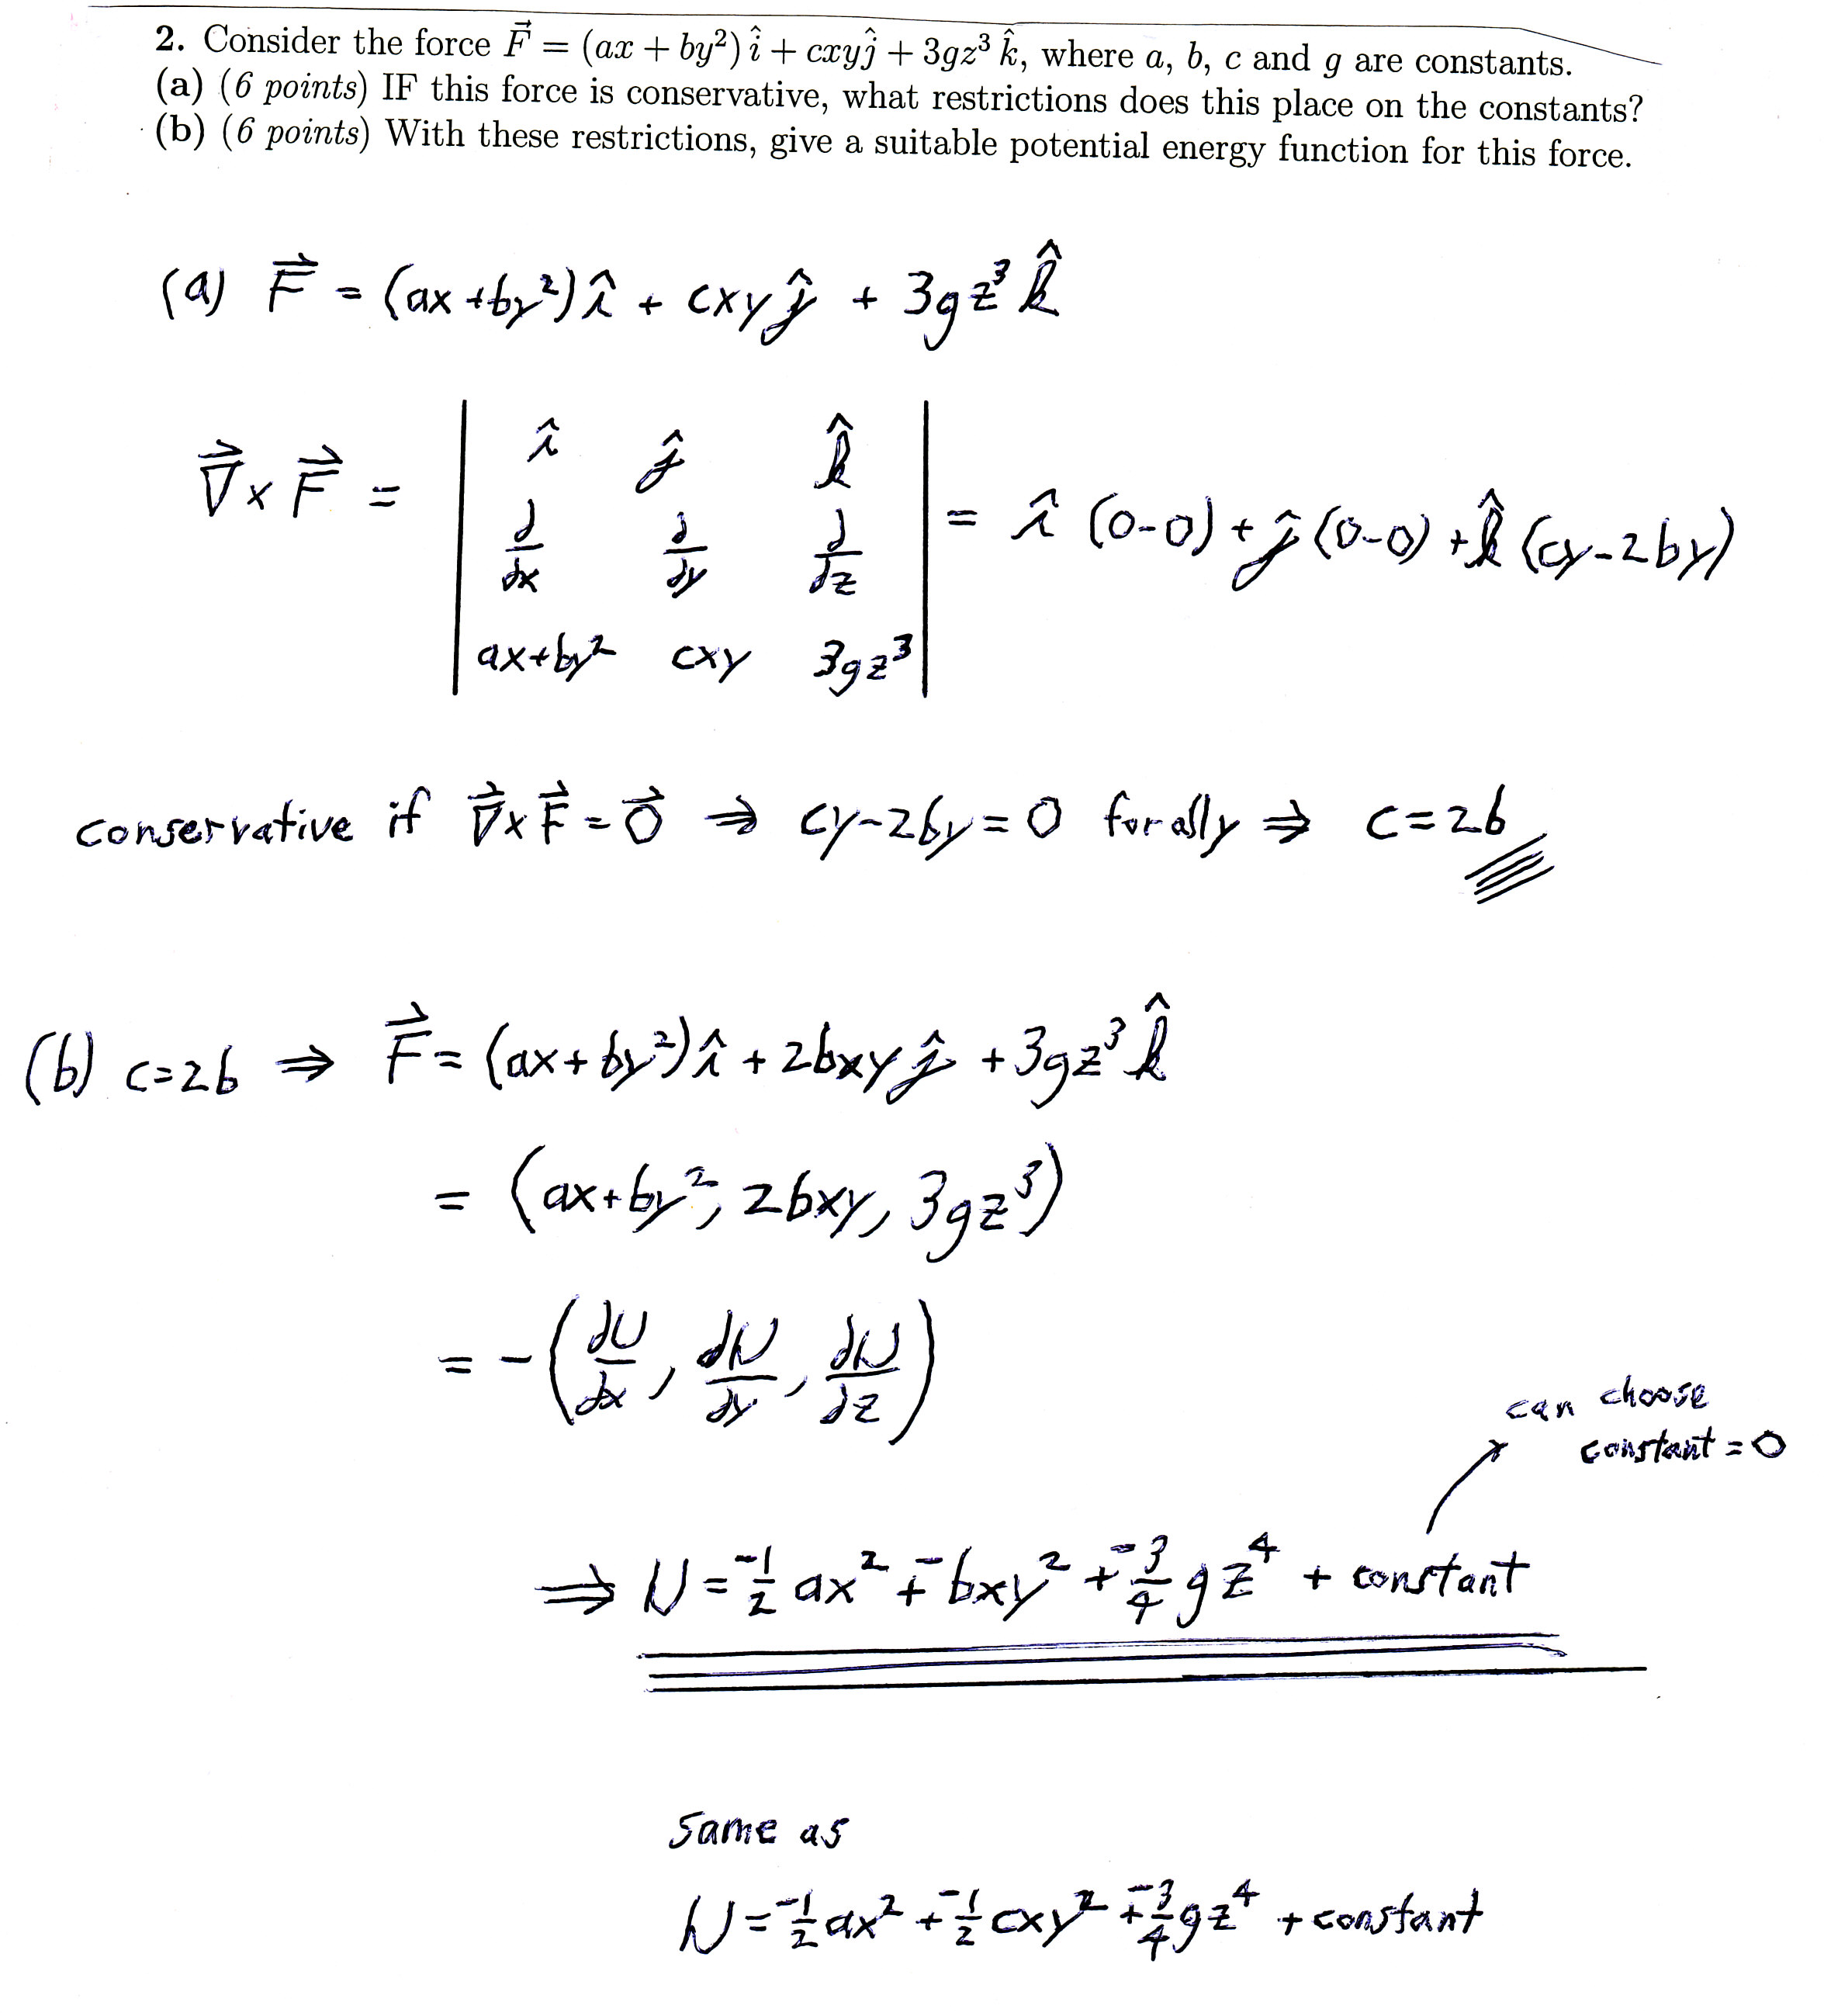 2. Consider the force F⃗ = (ax + by²) î + cxyĵ + 3gz³ k̂, where a, b, c and g are constants.
(a) (6 points) IF this force is conservative, what restrictions does this place on the constants?
(b) (6 points) With these restrictions, give a suitable potential energy function for this force.
(a) F⃗ = (ax + by²) î + cxy ĵ + 3gz³ k̂
î ĵ k̂
∇⃗ × F⃗ = | ∂/∂x ∂/∂y ∂/∂z | = î (0-0) + ĵ (0-0) + k̂ (cy-2by)
ax+by² cxy 3gz³
conservative if ∇⃗ × F⃗ = 0⃗ ⇒ cy-2by = 0 for all y ⇒ c=2b
(b) c=2b ⇒ F⃗ = (ax + by²) î + 2bxy ĵ + 3gz³ k̂
= (ax+by², 2bxy, 3gz³)
= -(∂U/∂x, ∂U/∂y, ∂U/∂z)
can choose
constant = 0
⇒ U = -1/2 ax² + -bxy² + -3/4 gz⁴ + constant
same as
U = -1/2 ax² + -1/2 cxy² + -3/4 gz⁴ + constant